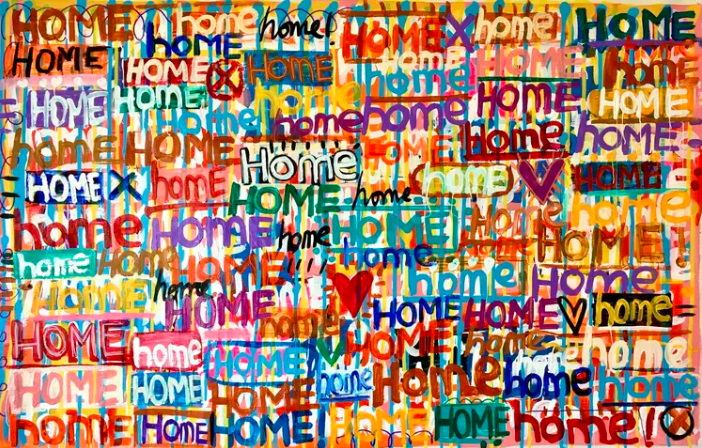 HOME home home! HOME X home HOME
HOME home HOME X HOME home home HOME home
HOME home home home home home HOME HOME home
home HOME Home HOME home
HOME X home HOME home home HOME home
home HOME home HOME Home HOME!
home Home HOME !!!! home home Home
HOME home HOME HOME HOME home =
HOME home HOME home HOME home home
HOME HOME HOME home Home home home
home Home HOME HOME HOME home! X